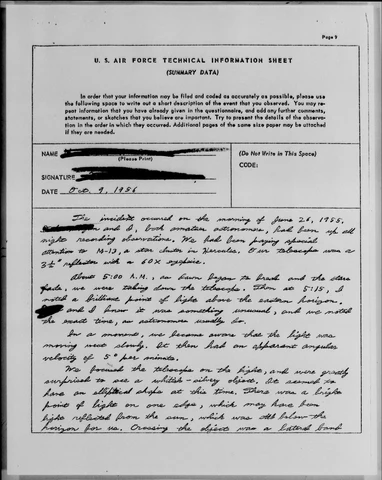 Page 9
U. S. AIR FORCE TECHNICAL INFORMATION SHEET
(SUMMARY DATA)
In order that your information may be filed and coded as accurately as possible, please use
the following space to write out a short description of the event that you observed. You may re-
peat information that you have already given in the questionnaire, and add any further comments,
statements, or sketches that you believe are important. Try to present the details of the observa-
tion in the order in which they occurred. Additional pages of the same size paper may be attached
if they are needed.
NAME
(Please Print)
SIGNATURE
DATE Oct. 9, 1956
(Do Not Write in This Space)
CODE:
The incident occurred on the morning of June 26, 1955.
and I, both amateur astronomers, had been up all
night recording observations. We had been paying special
attention to M-13, a star cluster in Hercules. Our telescope was a
3½" reflector with a 60X eyepiece.
About 5:00 A.M., as dawn began to break and the stars
fade, we were taking down the telescope. Then at 5:15, I
noted a brilliant point of light above the eastern horizon.
and I knew it was something unusual, and we noted
the exact time, as astronomers usually do.
In a moment, we became aware that the light was
moving west slowly. It then had an apparent angular
velocity of 5° per minute.
We focused the telescope on the light, and were greatly
surprised to see a whitish-silvery object. It seemed to
have an elliptical shape at this time. There was a bright
point of light on one edge, which may have been
light reflected from the sun, which was still below the
horizon for us. Crossing the object was a lateral band